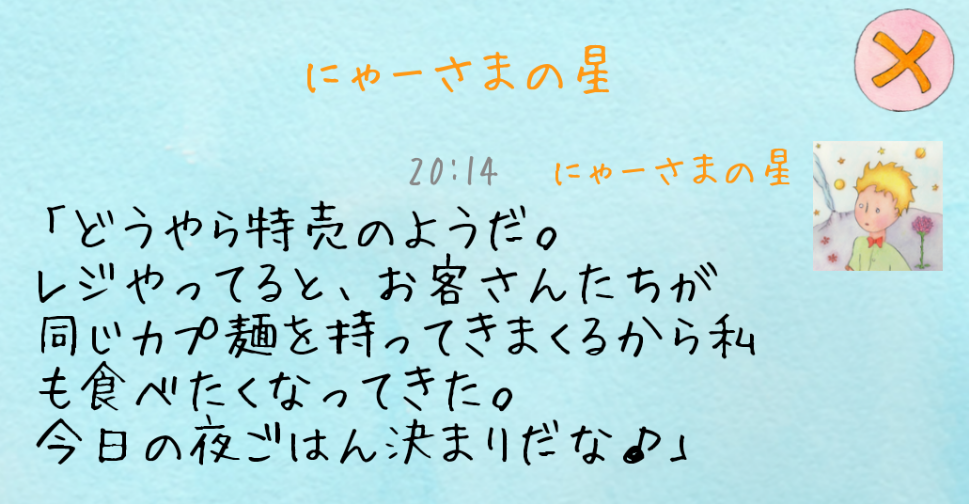 にゃーさまの星
20:14 にゃーさまの星
「どうやら特売のようだ。
レジやってると、お客さんたちが
同じカプ麺を持ってきまくるから私
も食べたくなってきた。
今日の夜ごはん決まりだな♪」